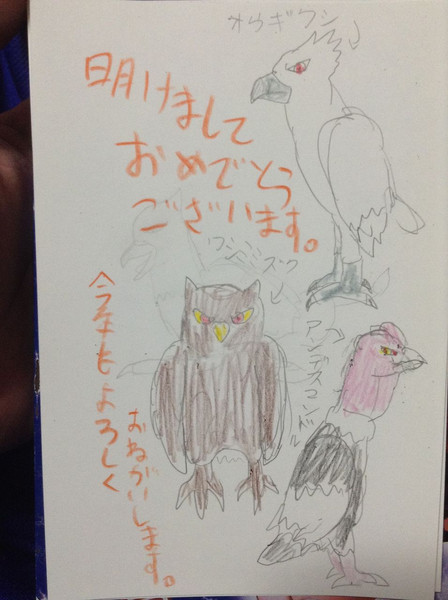 オウギワシ
明けまして
おめでとう
ございます。
ワシミミズク
アンデスコンドル
今年もよろしく
おねがいします。